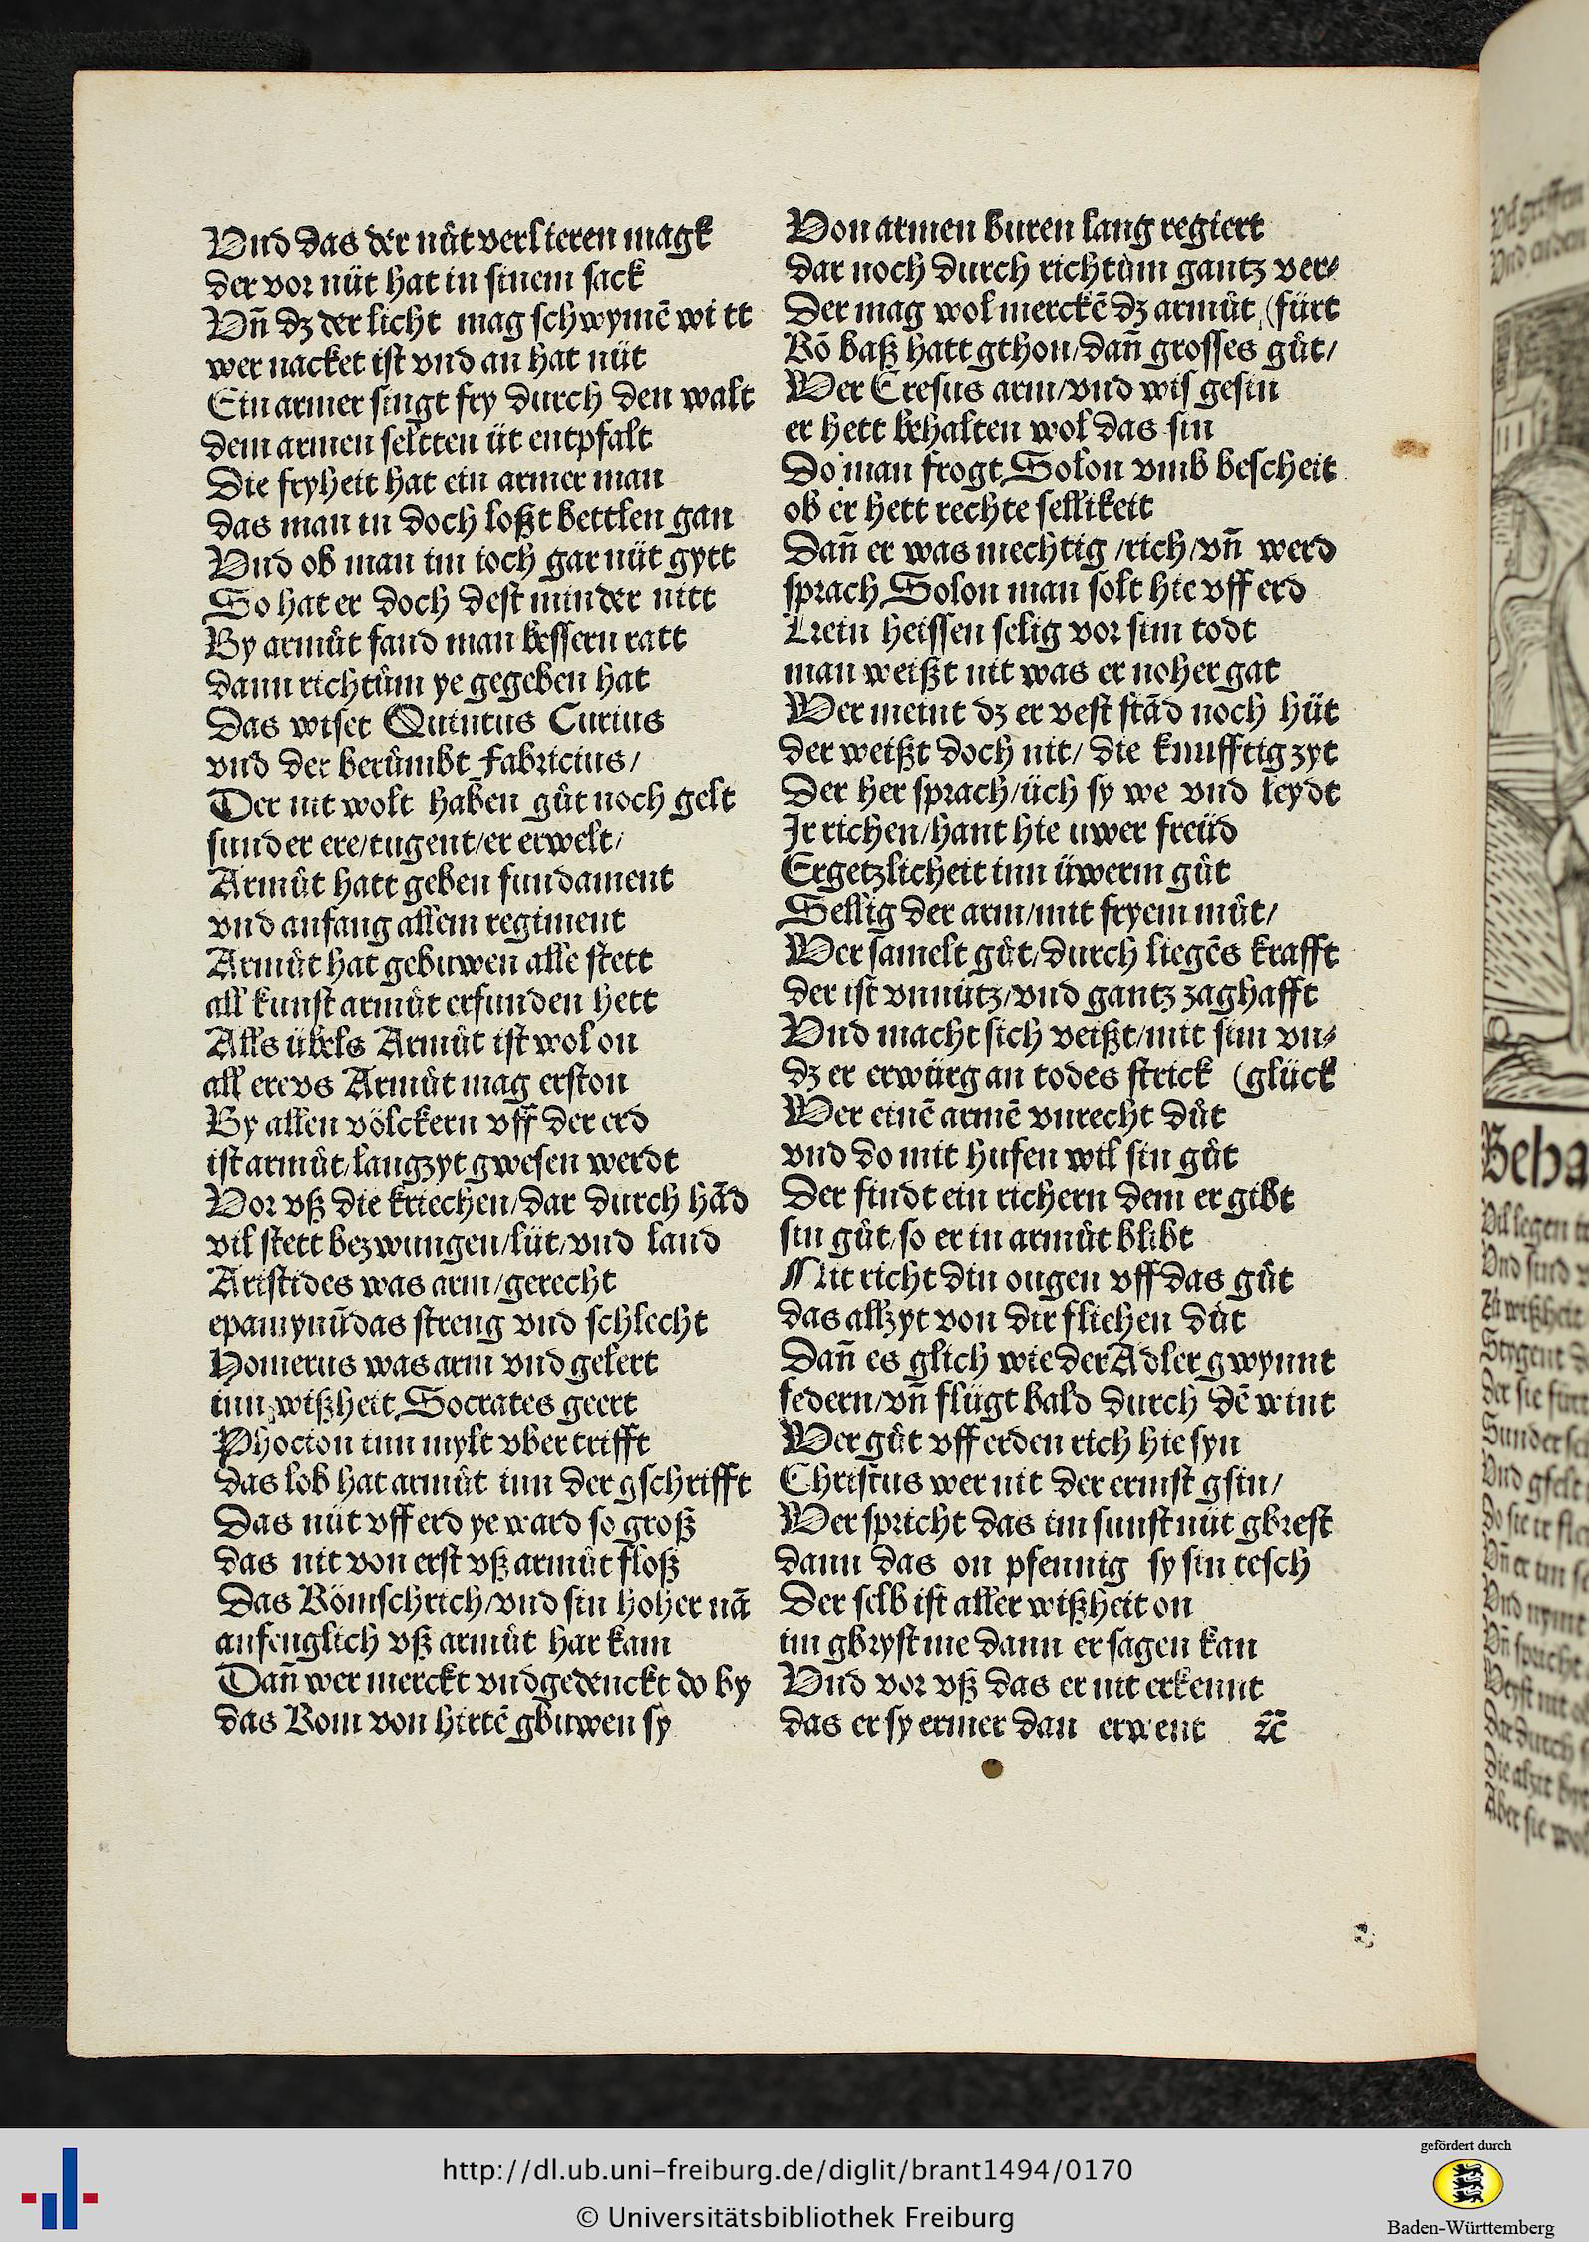 Vnd das der nüt verlieren magk
der vor nüt hat in sinem sack
Vn̄ dz der licht mag schwymē witt
wer nacket ist vnd an hat nüt
Ein armer singt fry durch den walt
dem armen seltten üt entpfalt
Die fryheit hat ein armer man
das man in doch loßt bettlen gan
Vnd ob man im ioch gar nüt gytt
So hat er doch dest minder nitt
By armůt fand man bessern ratt
dann richtům ye gegeben hat
Das wiset Quintus Curius
vnd der berůmbt Fabricius/
Der nit wolt haben gůt noch gelt
sunder ere/tugent/er erwelt/
Armůt hatt geben fundament
vnd anfang allem regiment
Armůt hat gebuwen alle stett
all kunst armůt erfunden hett
Alls übels Armůt ist wol on
all erevs Armůt mag erston
By allen völckern vff der erd
ist armůt/langzyt gwesen werdt
Vor vß die kriechen/dar durch hād
vil stett bezwungen/lüt/vnd land
Aristides was arm/gerecht
epamynūdas streng vnd schlecht
Homerus was arm vnd gelert
inn wißheit Socrates geert
Phocion inn mylt vber trifft
das lob hat armůt inn der gschrifft
Das nüt vff erd ye ward so groß
das nit von erst vß armůt floß
Das Römschrich/vnd sin hoher nā
anfenglich vß armůt har kam
Dan̄ wer merckt vnd gedenckt do by
das Rom von hirtē gbuwen sy
Von armen buren lang regiert
dar noch durch richtům gantz ver⸗
Der mag wol merckē dz armůt (fürt
Rō baß hatt gthon/dan̄ grosses gůt/
Wer Cresus arm/vnd wis gesin
er hett behalten wol das sin
Do man frogt Solon vmb bescheit
ob er hett rechte sellikeit
Dan̄ er was mechtig/rich/vn̄ werd
sprach Solon man solt hie vff erd
Krein heissen selig vor sim todt
man weißt nit was er noher gat
Wer meint dz er vest stād noch hüt
der weißt doch nit/ die knufftig zyt
Der her sprach/üch sy we vnd leydt
Ir richen/hant hie uwer freüd
Ergetzlicheit inn üwerm gůt
Sellig der arm/mit fryem můt/
Wer samelt gůt/durch liegēs krafft
der ist vnnütz/vnd gantz zaghafft
Vnd macht sich veißt/mit sim vn⸗
dz er erwürg an todes strick (glück
Wer einē armē vnrecht důt
vnd do mit hufen wil sin gůt
Der findt ein richern dem er gibt
sin gůt/so er in armůt blibt
Nit richt din ougen vff das gůt
das allzyt von dir fliehen důt
Dan̄ es glich wie der Adler gwynnt
federn/vn̄ flügt bald durch dē wint
Wer gůt vff erden rich hie syn
Christus wer nit der ermst gsin/
Wer spricht das im sunst nüt gbrest
dann das on pfennig sy sin tesch
Der selb ist aller wißheit on
im gbryst me dann er sagen kan
Vnd vor vß das er nit erkennt
das er sy ermer dan er went ꝛc̄
Beha
http://dl.ub.uni-freiburg.de/diglit/brant1494/0170
© Universitätsbibliothek Freiburg
gefördert durch
Baden-Württemberg